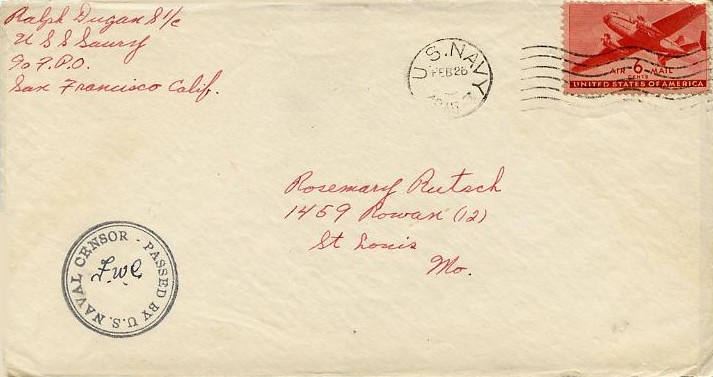 Ralph Dugan S 1/c
U S S Saury
c/o F.P.O.
San Francisco Calif.
U.S. NAVY
FEB 26
AIR 6 MAIL
CENTS
UNITED STATES OF AMERICA
Rosemary Rutsch
1459 Rowan (12)
St Louis
Mo.
PASSED BY U.S. NAVAL CENSOR
F.W.C